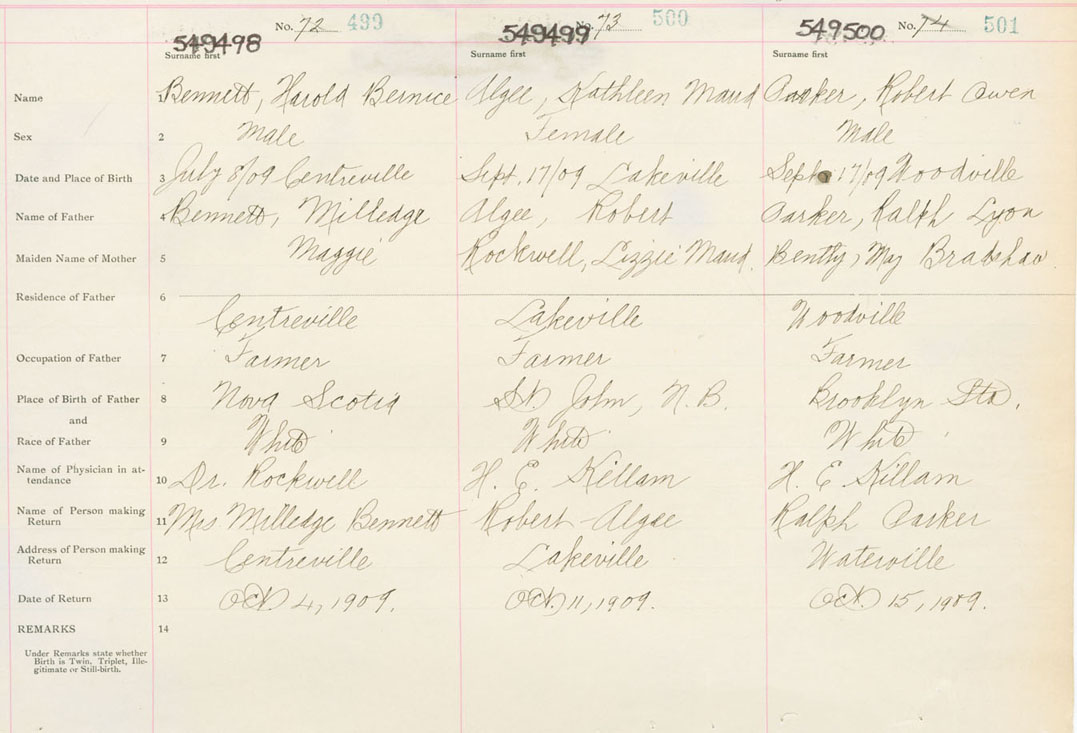 No. 72 499 No. 73 500 No. 74 501
549498 549499 549500
Surname first Surname first Surname first
Name 1 Bennett, Harold Bernice Algee, Kathleen Maud Parker, Robert Owen
Sex 2 Male Female Male
Date and Place of Birth 3 July 8/09 Centreville Sept. 17/09 Lakeville Sept 17/09 Woodville
Name of Father 4 Bennett, Milledge Algee, Robert Parker, Ralph Lyon
Maiden Name of Mother 5 Maggie Rockwell, Lizzie Maud. Bently, May Bradshaw
Residence of Father 6 Centreville Lakeville Woodville
Occupation of Father 7 Farmer Farmer Farmer
Place of Birth of Father 8 Nova Scotia St John, N.B. Brooklyn Sta.
and
Race of Father 9 White White White
Name of Physician in at-
tendance 10 Dr. Rockwell H. E. Killam H. E Killam
Name of Person making
Return 11 Mrs Milledge Bennett Robert Algee Ralph Parker
Address of Person making
Return 12 Centreville Lakeville Waterville
Date of Return 13 Oct. 4, 1909. Oct. 11, 1909. Oct. 15, 1909.
REMARKS 14
Under Remarks state whether
Birth is Twin. Triplet, Ille-
gitimate or Still-birth.